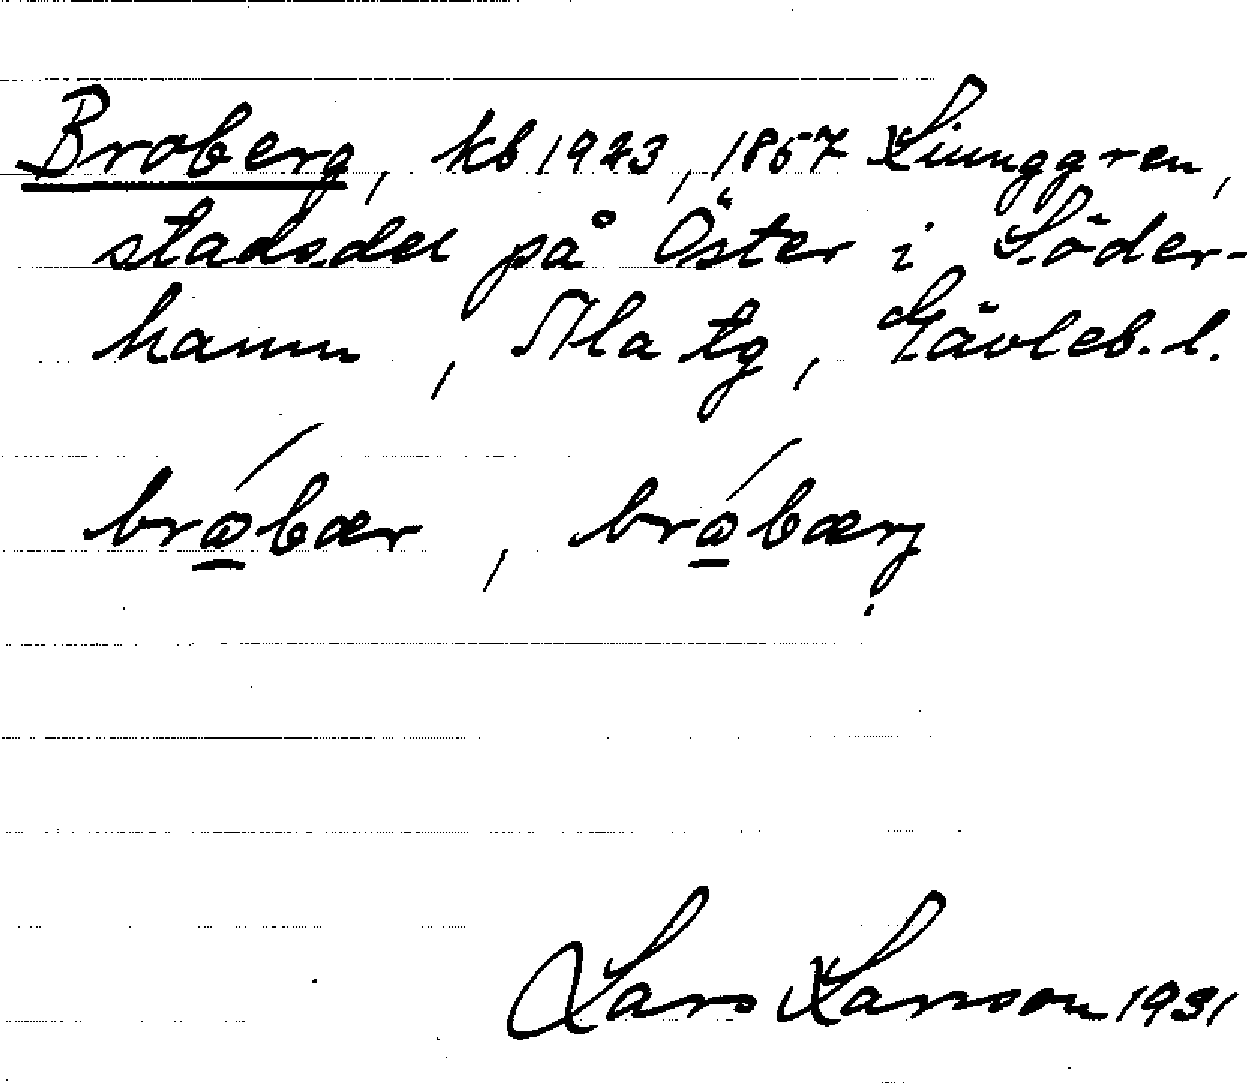 Broberg, kb 1923, 1857 Ljunggren,
stadsdel på Öster i Söder-
hamn, Ala tg, Gävleb. l.
bråbær, bråbærj
Lars Larsson 1931